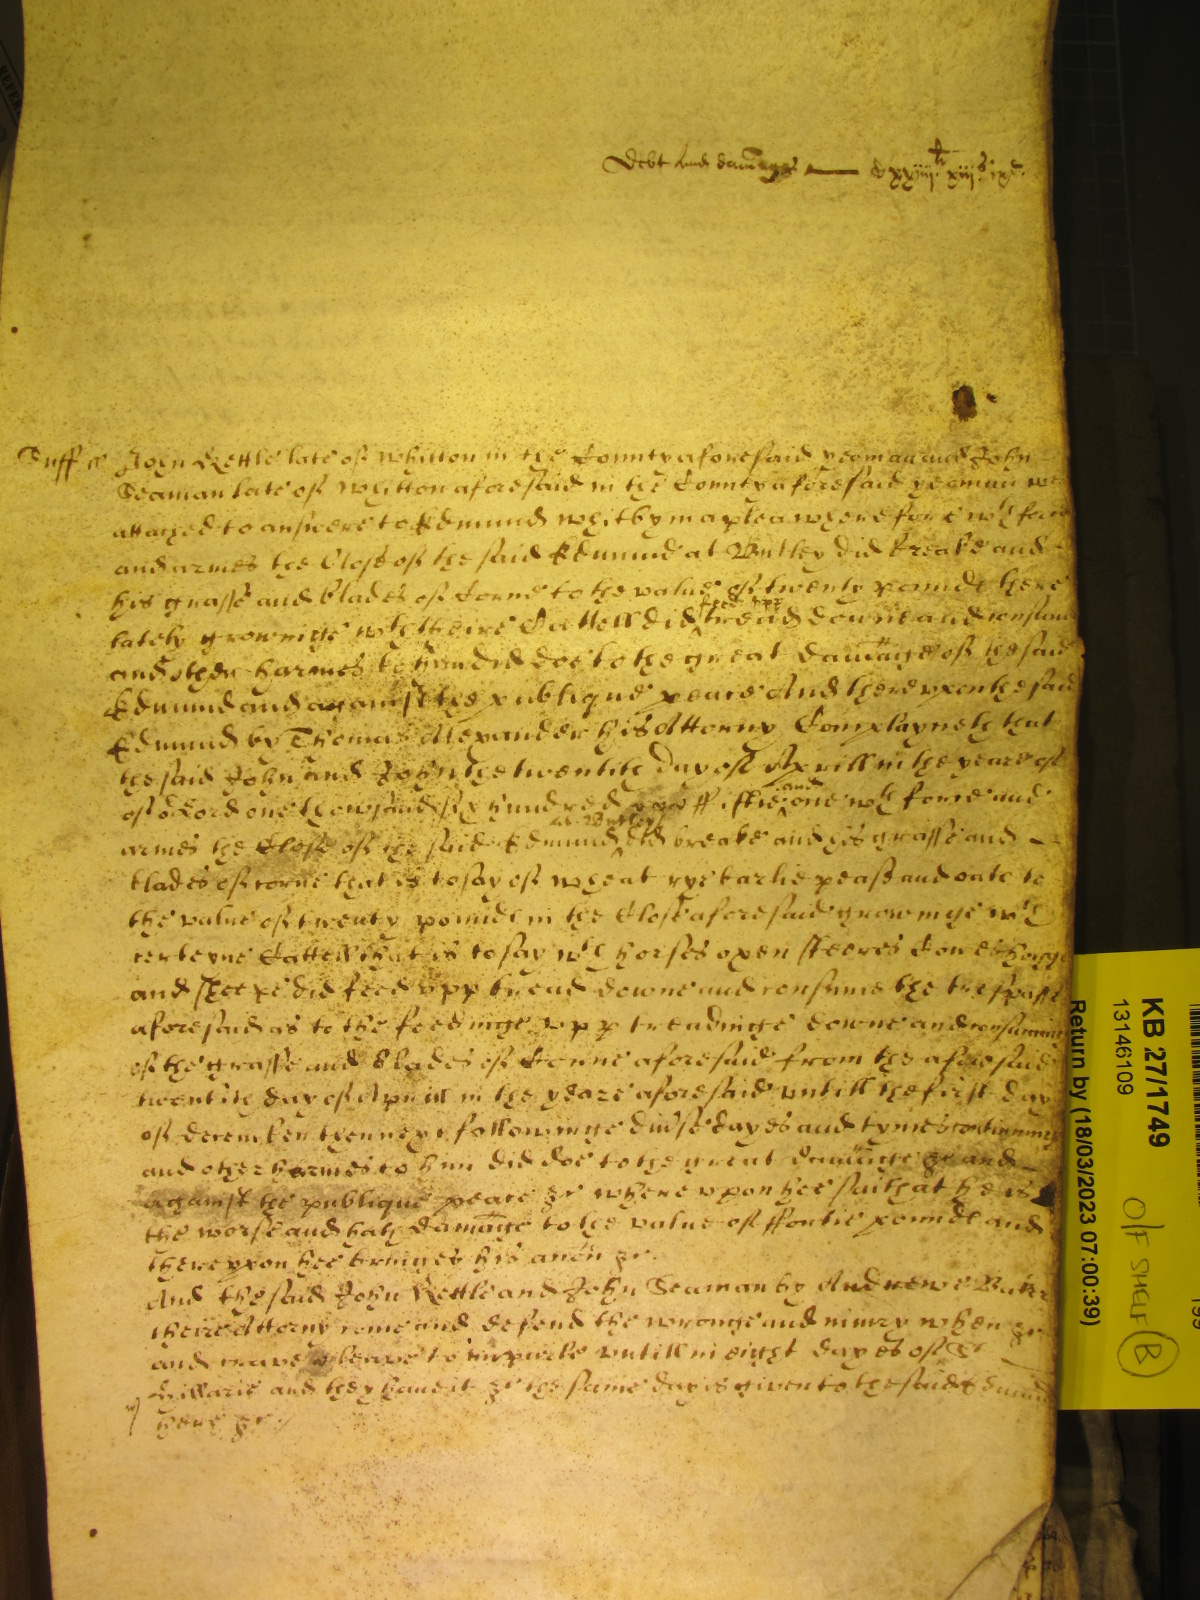 Debt and dam̄ages — dxxiiijli xiijs ixd.
Suff ss John Kettle late of Whitton in the County aforesaid yeoman and John
Seaman late of Whitton aforesaid in the County aforesaid yeoman we
attached to answere to Edmund Whitby in a plea wherefore wth force
and armes the Close of the said Edmund at Butley did breake and
his grasse and blades of Corne to the value of twenty pounds there
feed upp
lately growinge wth theire Cattell did tread downe and consume
and other harmes to him did doe to the great dam̄age of the said
Edmund and against the publique peace And thereupon the said
Edmund by Thomas Alexander his Attorny Complayneth that
the said John and John the twentith day of Aprill in the yeare of
and
of or Lord one thowsand six hundred ffiftie one wth force and
at Butley
armes the Close of the said Edmund did breake and his grasse and
blades of corne that is to say of wheat rye barlie peass and oats to
the value of twenty pounds in the Close aforesaid growinge wth
certeyne Cattell that is to say wth horses oxen steeres Cowes hogges
and sheepe did feed upp tread downe and consume the trespasse
aforesaid as to the feedinge upp treadinge downe and consuminge
of the grasse and blades of Corne aforesaid from the aforesaid
twentith day of Aprill in the yeare aforesaid untill the first day
of december then next followinge divse dayes and tymes continuinge
and other harmes to him did doe to the great dam̄age &c and
against the publique peace &c whereupon hee saith that he is
the worse and hath dam̄age to the value of ffortie pounds and
thereupon hee bringes his accōn &c.
And the said John Kettle and John Seaman by Andrewe
theire Attorny come and defend the wronge and iniury when &c
and crave leave to imparle untill in eight dayes of St
Hillarie and they have it &c the same day is given to the said Edmund
here &c
KB 27/1749
13146109
Return by (18/03/2023 07:00:39)
O/F SHELF B